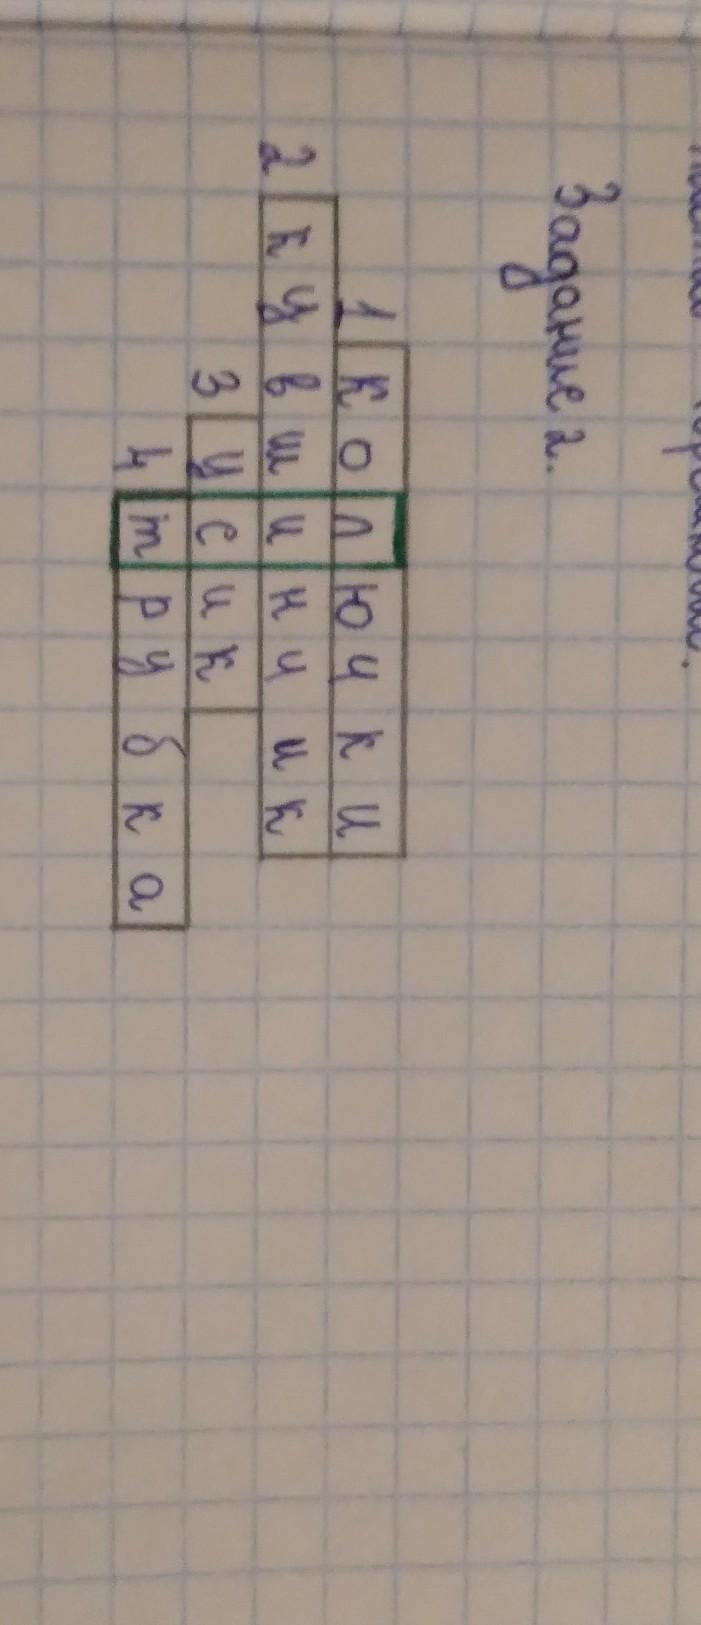 Задание 2.
1 колючки
2 кувшинчик
3 усик
4 трубка